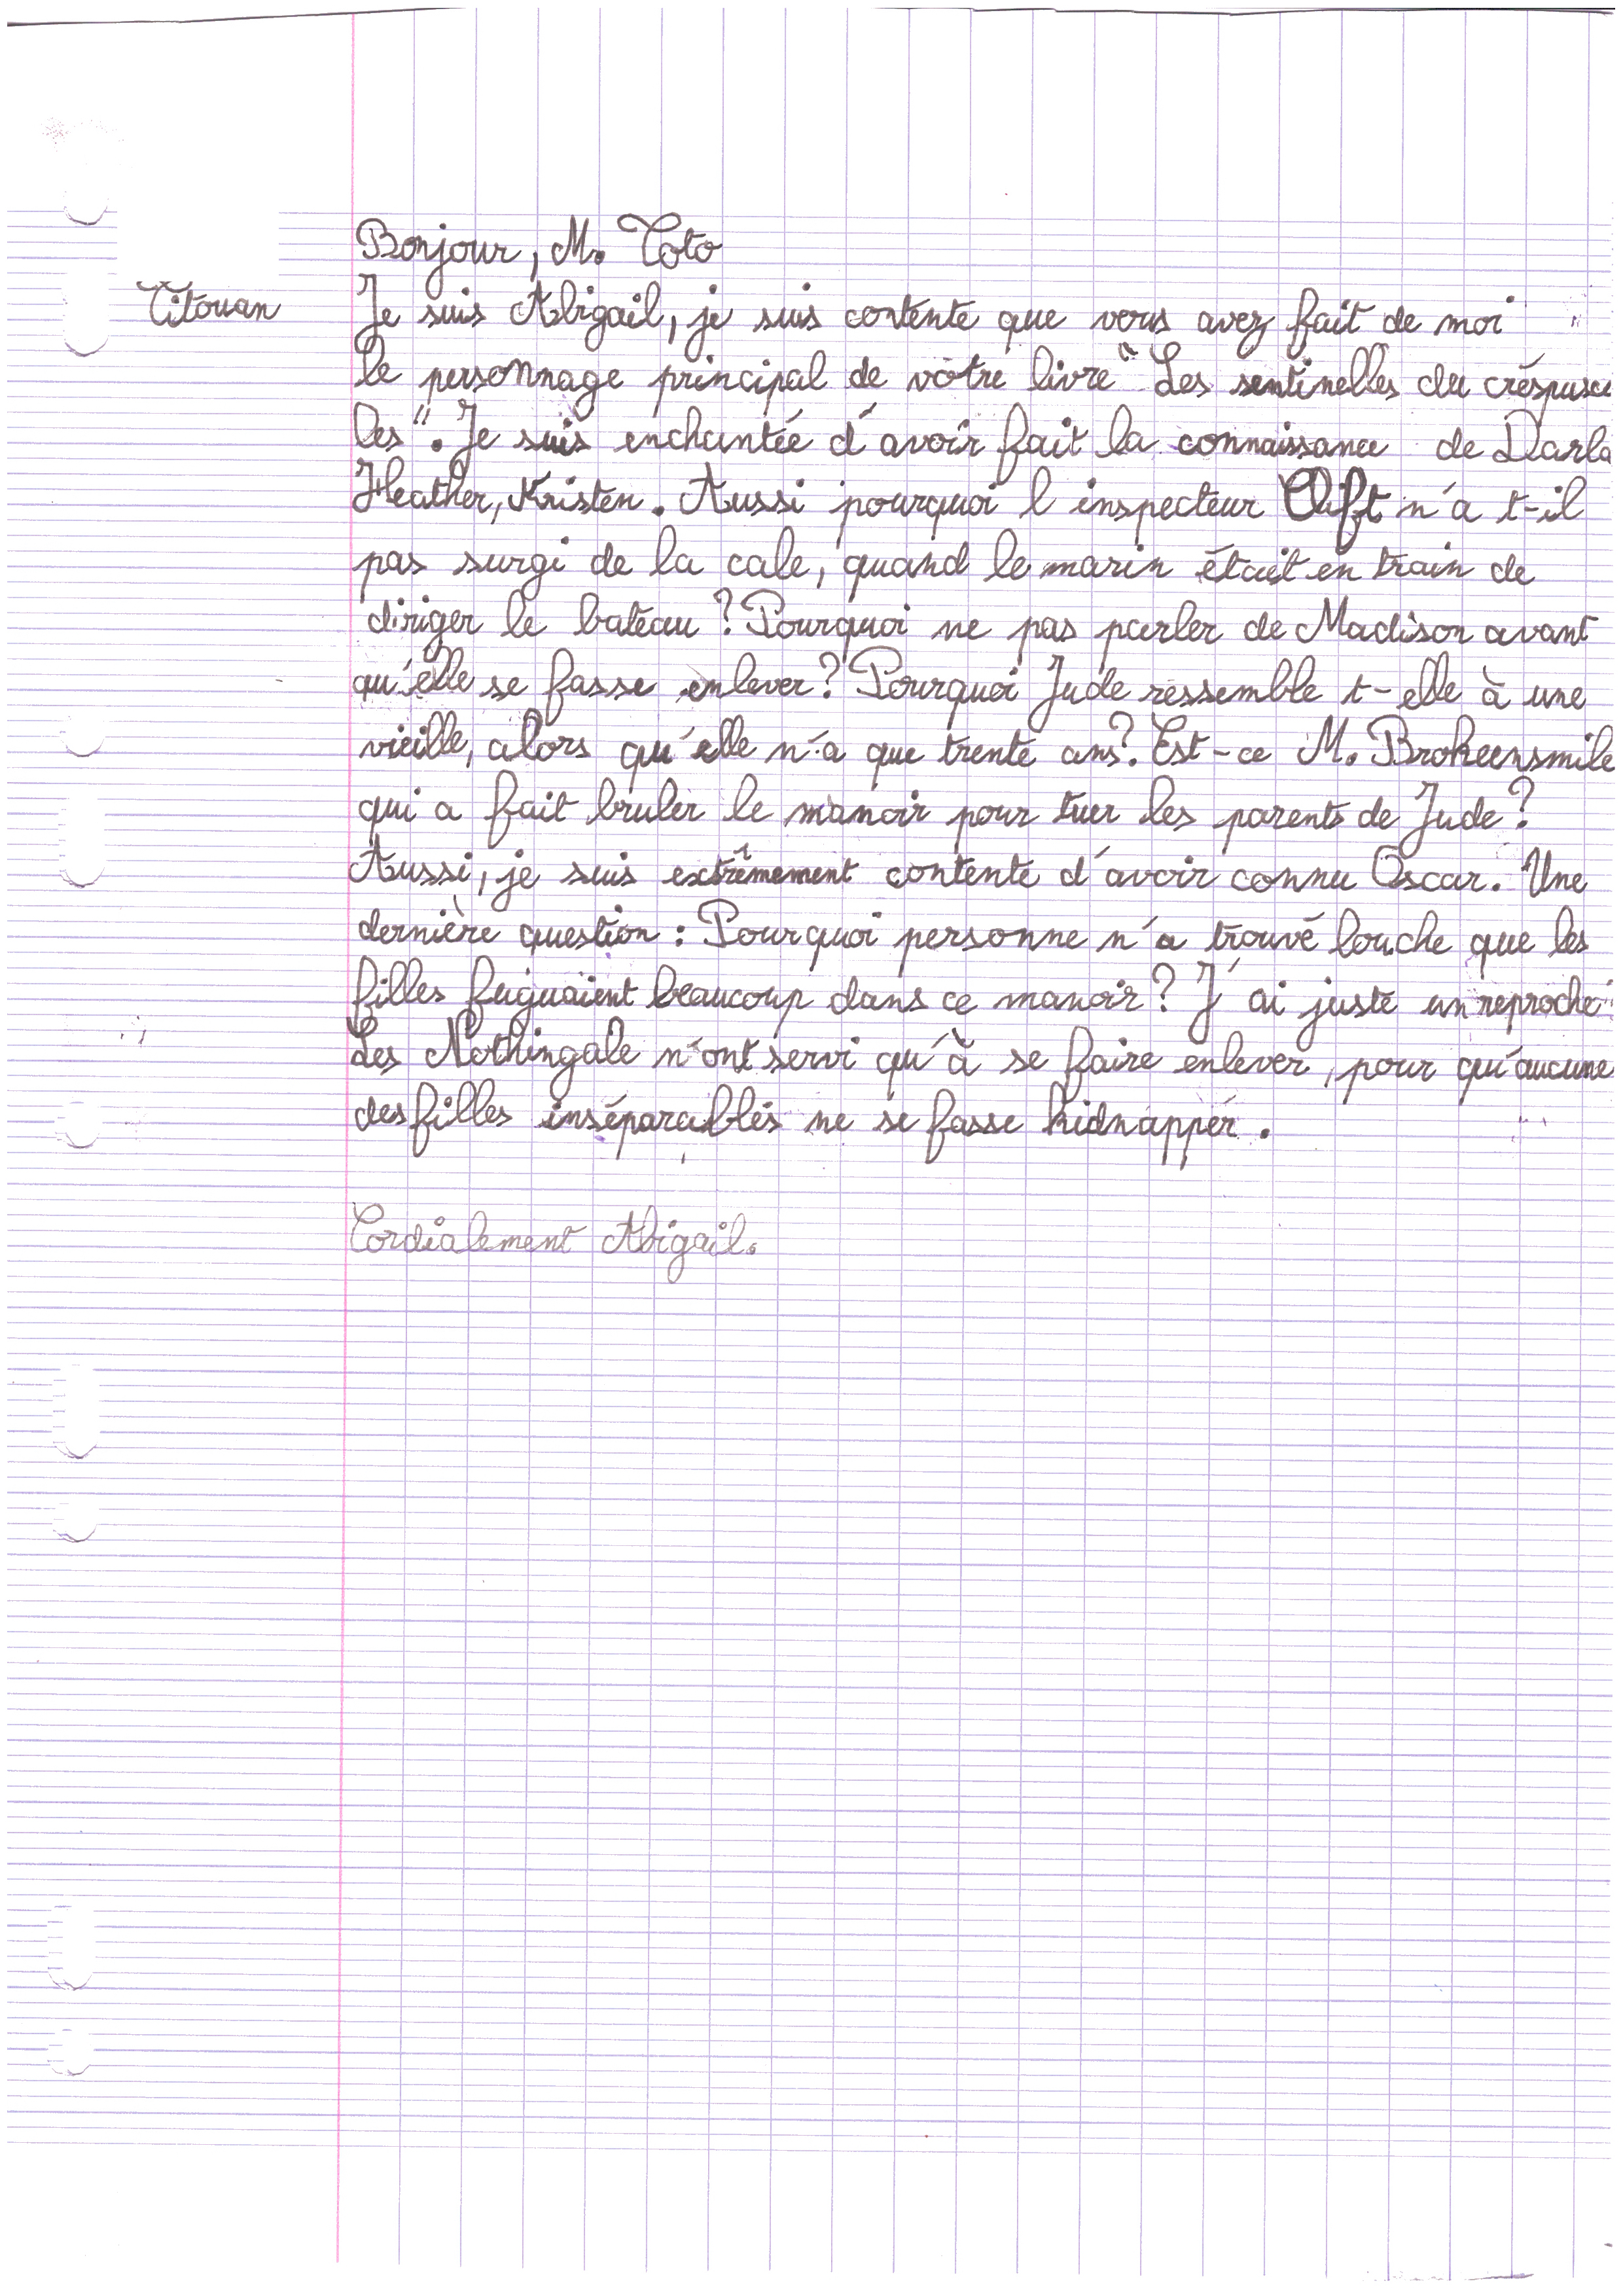 Bonjour, M. Toto
Titouan
Je suis Abigail, je suis contente que vous avez fait de moi
le personnage principal de votre livre "Les sentinelles du créspuscu
les". Je suis enchantée d'avoir fait la connaissance de Darla
Heather, Kristen. Aussi pourquoi l'inspecteur Clift n'a t-il
pas surgi de la cale, quand le marin était en train de
diriger le bateau ? Pourquoi ne pas parler de Madison avant
qu'elle se fasse enlever ? Pourquoi Jude ressemble t-elle à une
vieille, alors qu'elle n'a que trente ans ? Est-ce M. Brokeensmile
qui a fait bruler le manoir pour tuer les parents de Jude ?
Aussi, je suis extrêmement contente d'avoir connu Oscar. Une
dernière question : Pourquoi personne n'a trouvé louche que les
filles fuguaient beaucoup dans ce manoir ? J'ai juste un reproche :
Les Nothingale n'ont servi qu'à se faire enlever, pour qu'aucune
des filles inséparables ne se fasse kidnapper.
Cordialement Abigail.